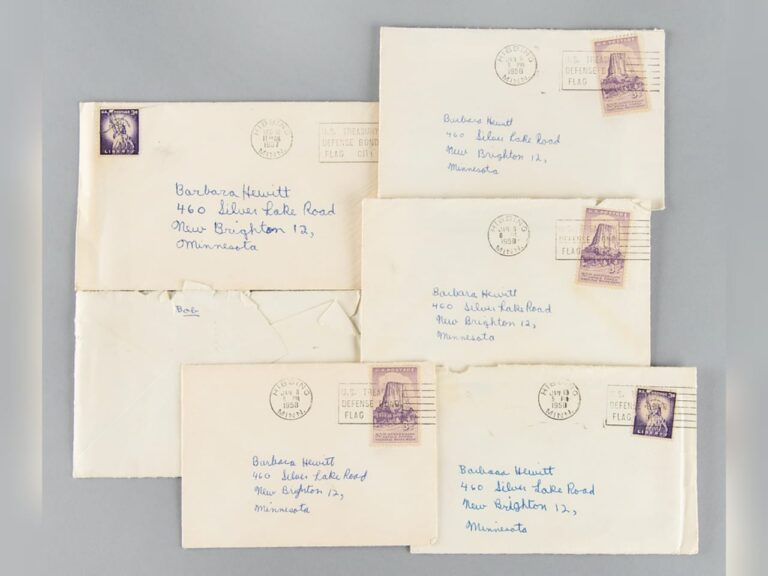 U.S. POSTAGE 3¢
LIBERTY
HIBBING
1957
MINN.
U.S. TREASURY
DEFENSE BOND
FLAG CITY
Barbara Hewitt
460 Silver Lake Road
New Brighton 12,
Minnesota
Bob
HIBBING
1958
MINN.
U.S. TREAS
DEFENSE
FLAG
U.S. POSTAGE
Barbara Hewitt
460 Silver Lake Road
New Brighton 12,
Minnesota
HIBBING
JAN
1958
MINN.
DEFENSE BOND
FLAG
U.S. POSTAGE
Barbara Hewitt
460 Silver Lake Road
New Brighton 12,
Minnesota
HIBBING
JAN
PM
1958
MINN.
U.S. TREAS
DEFENSE BOND
FLAG
U.S. POSTAGE
Barbara Hewitt
460 Silver Lake Road
New Brighton 12,
Minnesota
HIBBING
JAN
1958
MINN.
DEFENSE
FLAG
LIBERTY
Barbara Hewitt
460 Silver Lake Road
New Brighton 12,
Minnesota